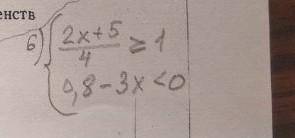 енств
б) { (2x+5)/4 ≥ 1
0,8-3x<0